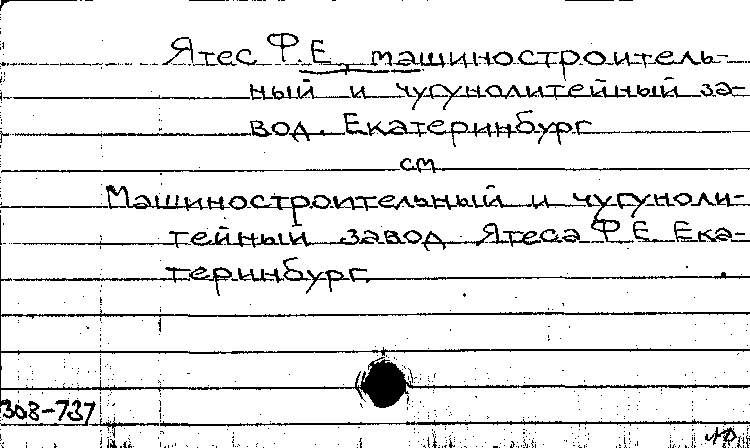 Ятес Ф.Е., машиностроитель-
ный и чугунолитейный за-
вод. Екатеринбург
см
Машиностроительный и чугуноли-
тейный завод Ятеса Ф.Е. Ека-
теринбург.
308-737